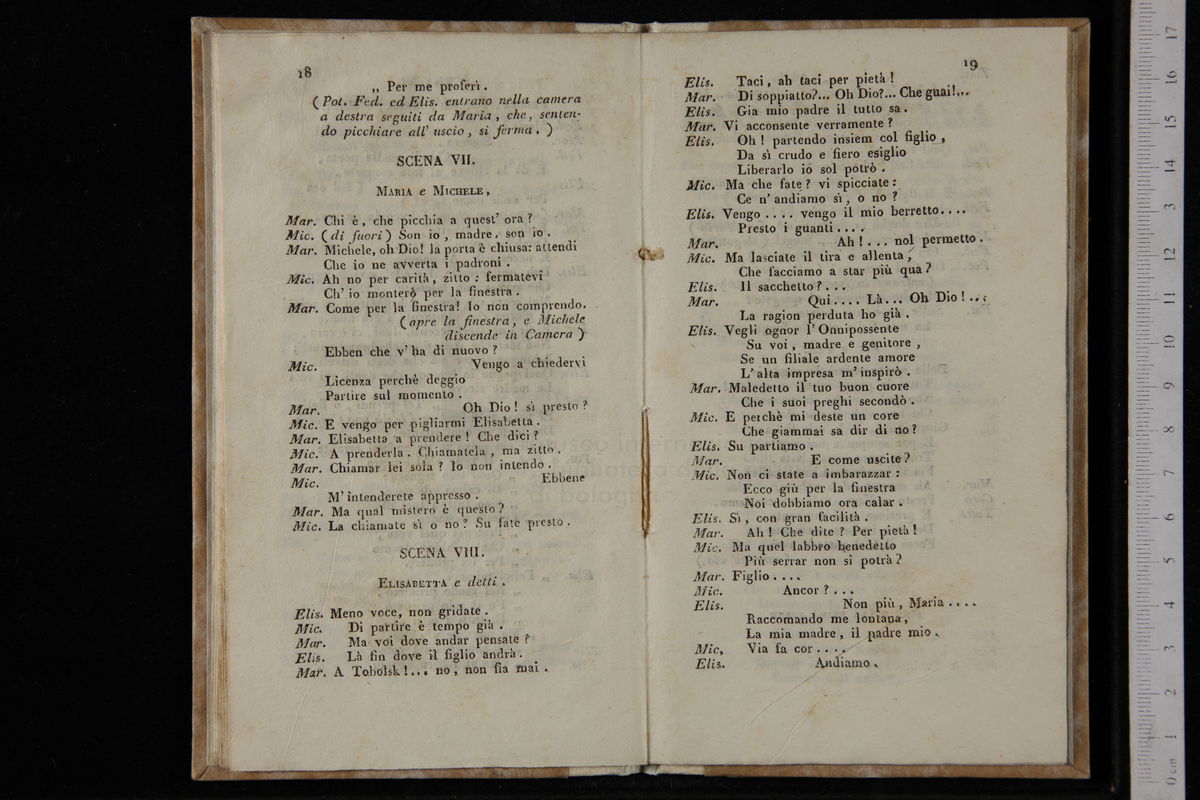 18
„ Per me proferì .
( Pot. Fed. ed Elis. entrano nella camera
a destra seguiti da Maria , che, senten-
do picchiare all' uscio , si ferma . )
SCENA VII.
MARIA e MICHELE ,
Mar. Chi è , che picchia a quest' ora ?
Mic. ( di fuori ) Son io , madre . son io .
Mar. Michele, oh Dio! la porta è chiusa: attendi
Che io ne avverta i padroni .
Mic. Ah no per carità , zitto : fermatevi
Ch' io monterò per la finestra .
Mar. Come per la finestra! Io non comprendo.
( apre la finestra , e Michele
discende in Camera )
Ebben che v' ha di nuovo ?
Mic. Vengo a chiedervi
Licenza perchè deggio
Partire sul momento .
Mar. Oh Dio! sì presto ?
Mic. E vengo per pigliarmi Elisabetta .
Mar. Elisabetta a prendere ! Che dici ?
Mic. A prenderla . Chiamatela , ma zitto .
Mar. Chiamar lei sola ? Io non intendo .
Mic. Ebbene
M' intenderete appresso .
Mar. Ma qual mistero è questo ?
Mic. La chiamate sì o no ? Su fate presto .
SCENA VIII.
ELISABETTA e detti .
Elis. Meno voce, non gridate .
Mic. Di partire è tempo già .
Mar. Ma voi dove andar pensate ?
Elis. Là fin dove il figlio andrà .
Mar. A Tobolsk !... no , non fia mai .
19
Elis. Taci , ah taci per pietà !
Mar. Di soppiatto?... Oh Dio?... Che guai!...
Elis. Gia mio padre il tutto sa .
Mar. Vi acconsente verramente ?
Elis. Oh ! partendo insiem col figlio ,
Da sì crudo e fiero esiglio
Liberarlo io sol potrò .
Mic. Ma che fate ? vi spicciate :
Ce n' andiamo sì , o no ?
Elis. Vengo .... vengo il mio berretto....
Presto i guanti ....
Mar. Ah ! ... nol permetto .
Mic. Ma lasciate il tira e allenta ,
Che facciamo a star più qua ?
Elis. Il sacchetto ? ...
Mar. Qui .... Là ... Oh Dio ! ...
La ragion perduta ho già .
Elis. Vegli ognor l' Onnipossente
Su voi , madre e genitore ,
Se un filiale ardente amore
L' alta impresa m' inspirò .
Mar. Maledetto il tuo buon cuore
Che i suoi preghi secondò .
Mic. E perchè mi deste un core
Che giammai sa dir di no ?
Elis. Su partiamo .
Mar. E come uscite ?
Mic. Non ci state a imbarazzar :
Ecco giù per la finestra
Noi dobbiamo ora calar .
Elis. Sì , con gran facilità .
Mar. Ah ! Che dite ? Per pietà !
Mic. Ma quel labbro benedetto
Più serrar non si potrà ?
Mar. Figlio ....
Mic. Ancor ? ...
Elis. Non più , Maria ....
Raccomando me lontana ,
La mia madre , il padre mio .
Mic, Via fa cor ....
Elis. Andiamo .